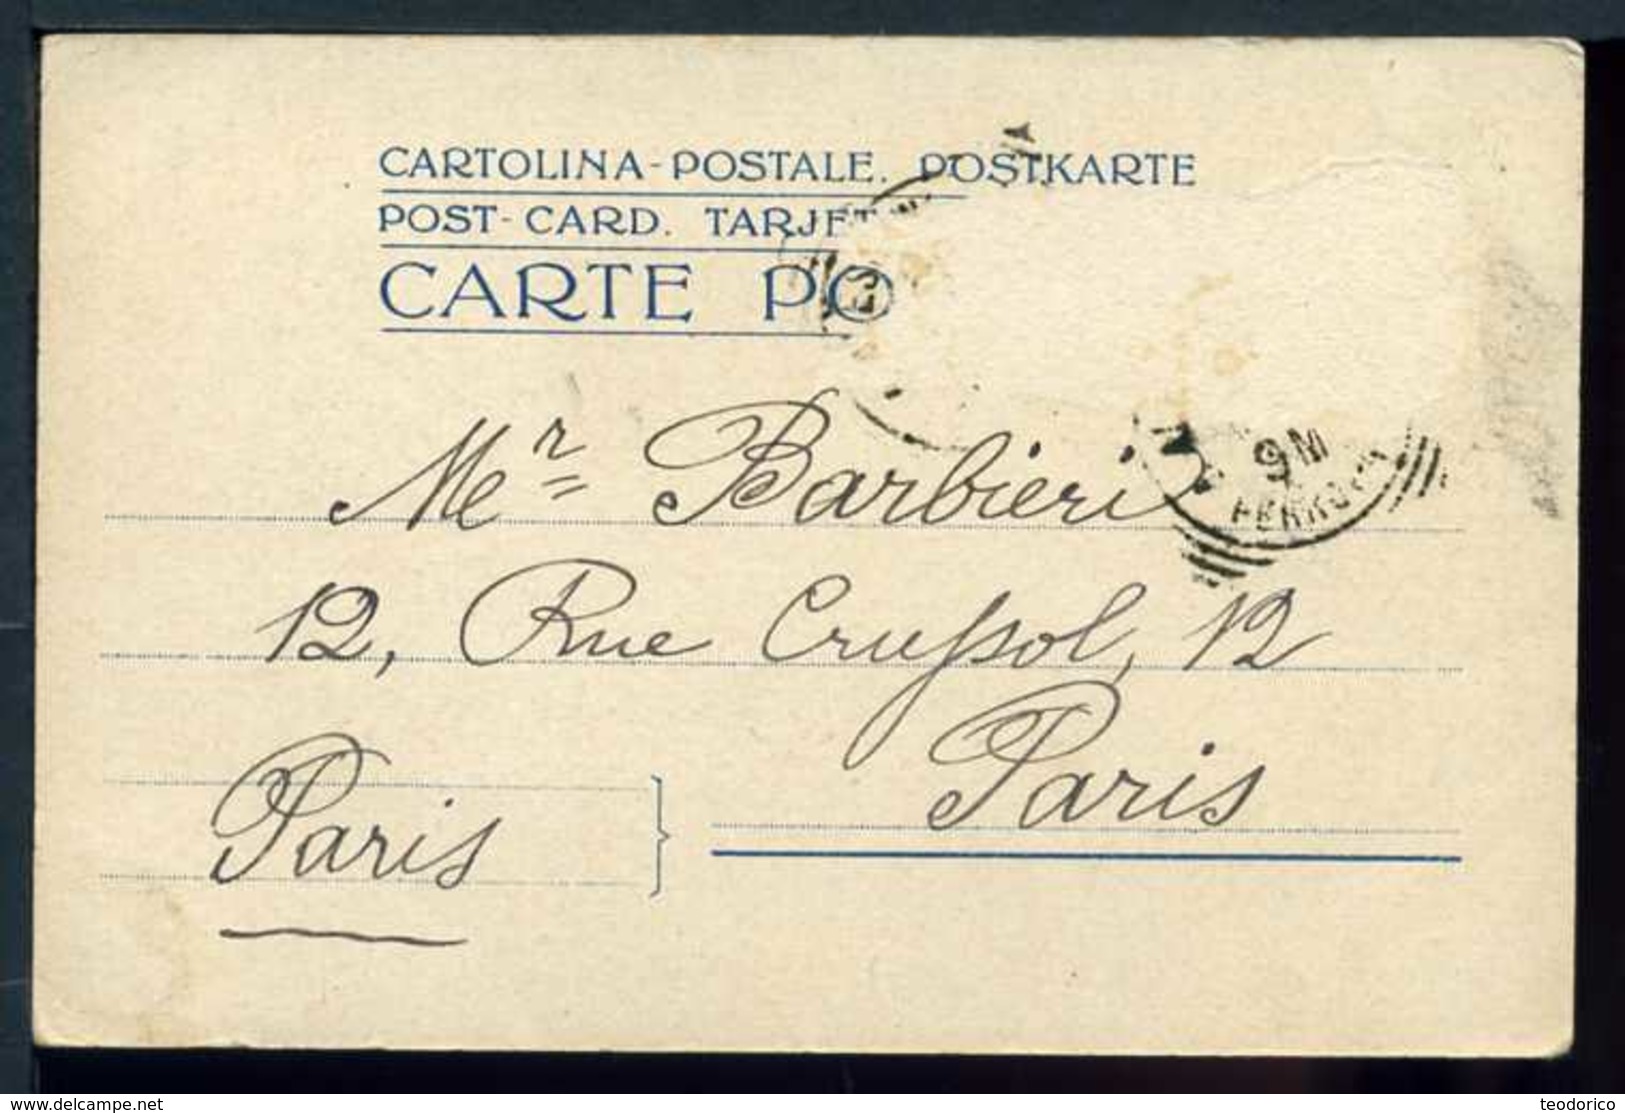 CARTOLINA-POSTALE. POSTKARTE
POST-CARD. TARJET
CARTE PO
9M
FERROV
Mr Barbieri
12, Rue Crussol, 12
Paris
Paris
delcampe.net
teodorico